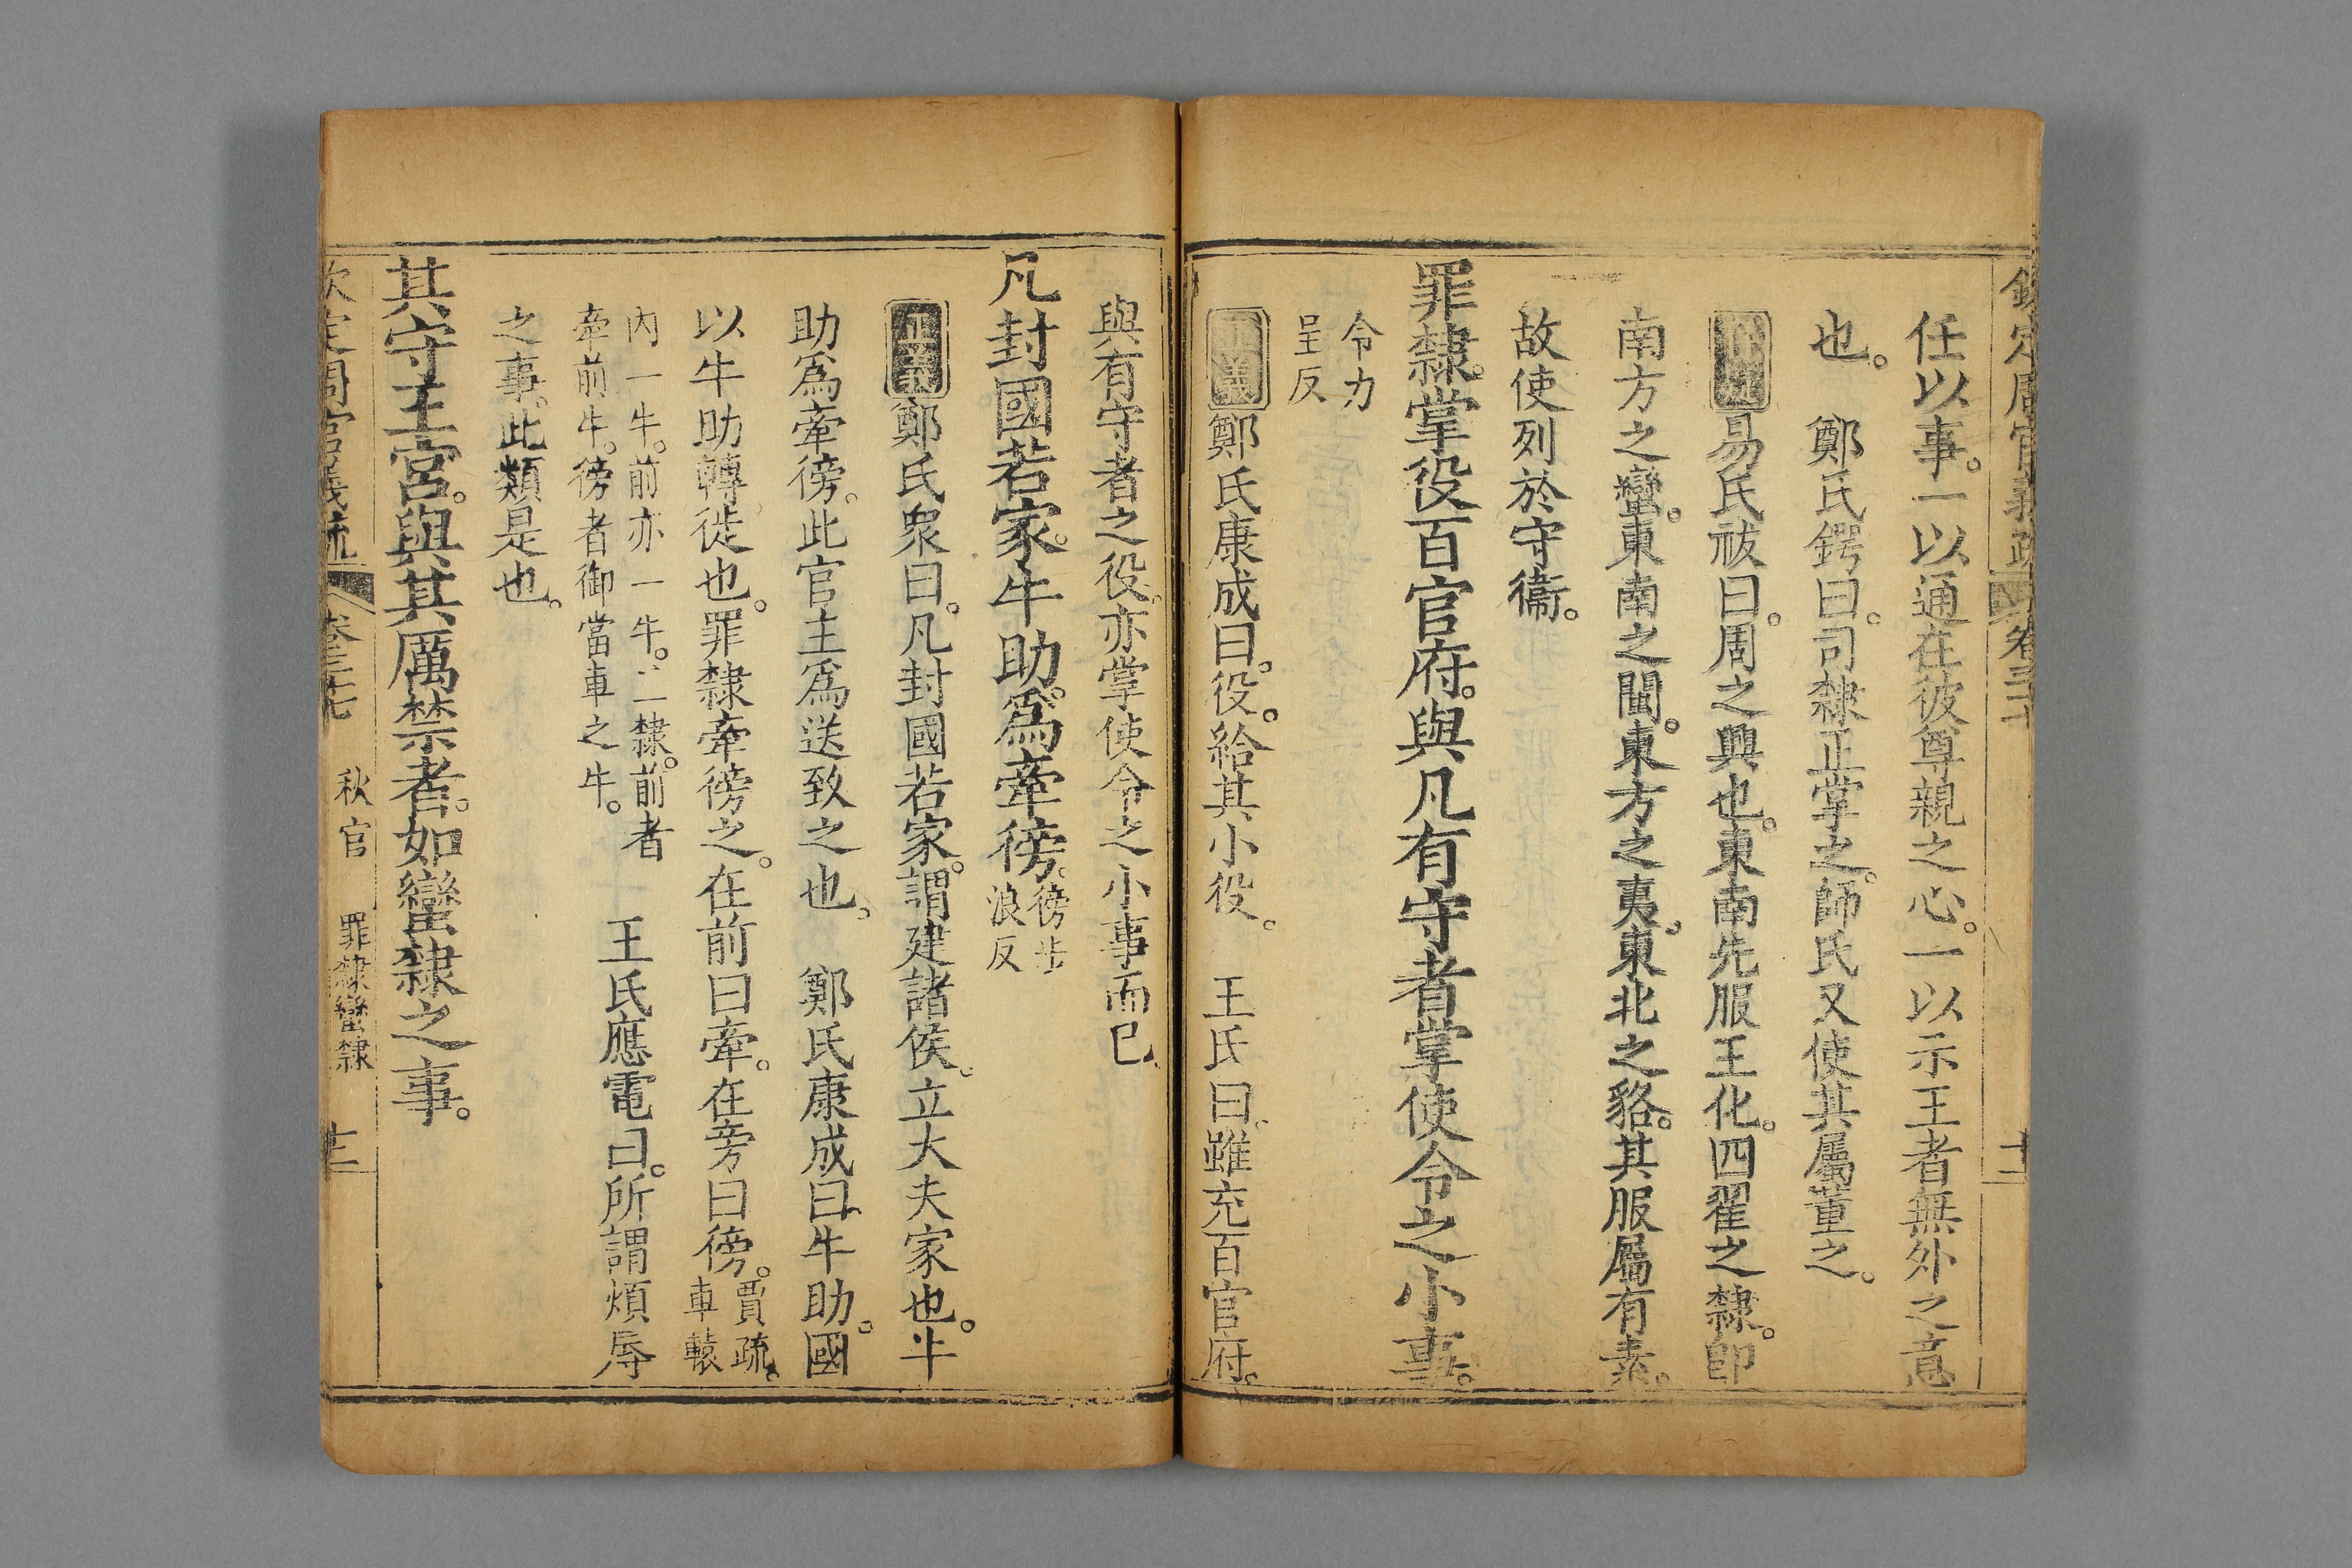 欽定周官義疏 卷三十七 十二
任以事。一以通在彼尊親之心。一以示王者無外之意
也。 鄭氏鍔曰。司隸正掌之。師氏又使其屬董之。
易氏祓曰。周之興也。東南先服王化。四翟之隸。卽
南方之蠻。東南之閩。東方之夷。東北之貉。其服屬有素。
故使列於守衞。
罪隸。掌役百官府。與凡有守者掌使令之小事。
令力
呈反
正義鄭氏康成曰。役。給其小役。 王氏曰。雖充百官府。
與有守者之役。亦掌使令之小事而已
凡封國若家。牛助。爲牽徬。徬步
浪反
正義鄭氏衆曰。凡封國若家。謂建諸侯。立大夫家也。牛
助爲牽徬。此官主爲送致之也。 鄭氏康成曰。牛助。國
以牛助轉徙也。罪隸牽徬之。在前曰牽。在旁曰徬。賈疏。
車轅
內一牛。前亦一牛。二隸。前者
牽前牛。徬者御當車之牛。
王氏應電曰。所謂煩辱
之事。此類是也。
其守王宮。與其厲禁者。如蠻隸之事。
欽定周官義疏 卷三十七 秋官 罪隸蠻隸 十二